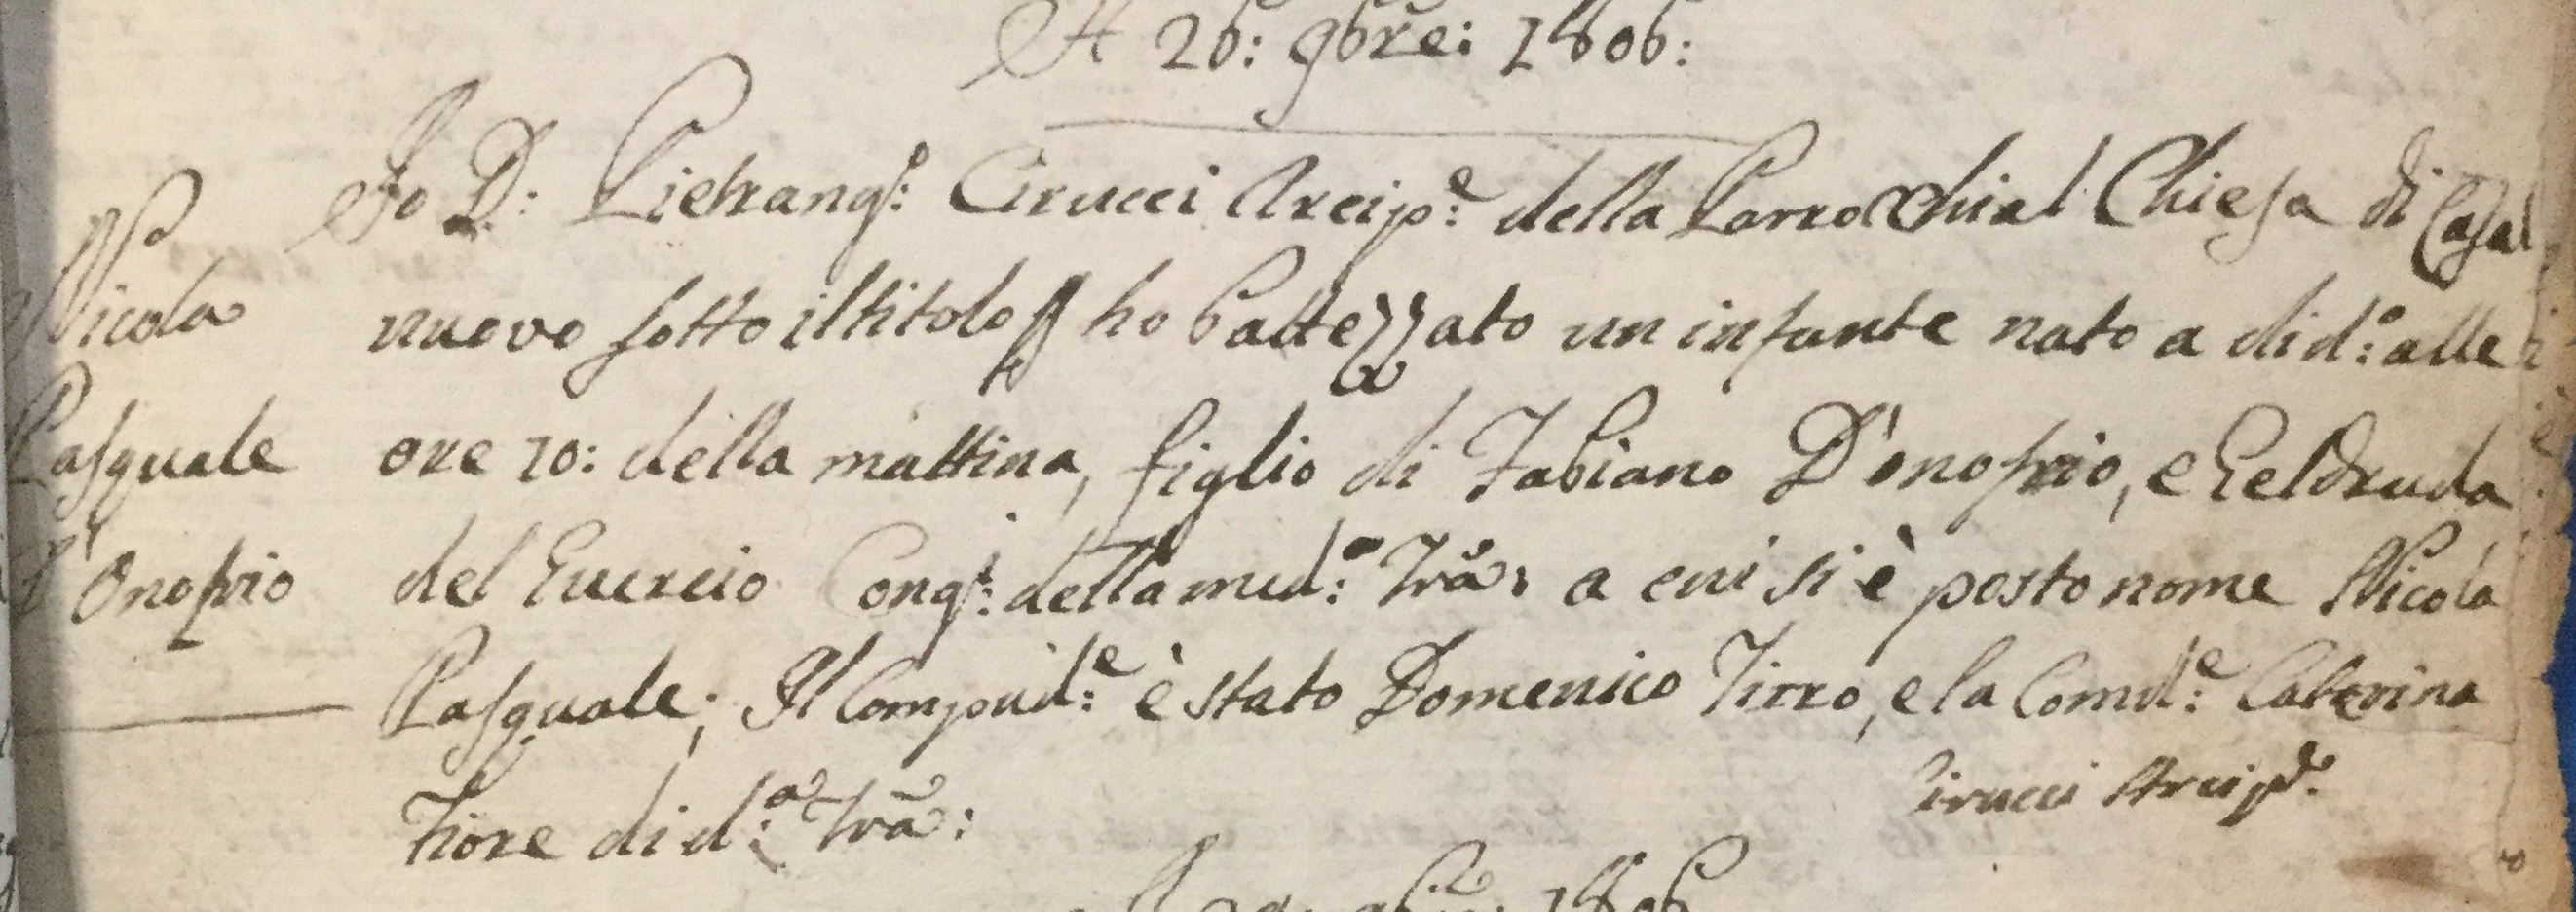 A 26: 9bre: 1806:
Io D: Pietrang.lo: Cirucci Arcip.e: della Parrocchial Chiesa di Casal
Nicola nuovo sotto il titolo ho battezzato un infante nato a di d.o: alle
Pasquale ore 10: della mattina, figlio di Fabiano D'onofrio, e Geldruda
D'Onofrio del Guercio Cong.i: della med.a: Trã: a cui si è posto nome Nicola
Pasquale; Il Compad.e: è stato Domenico Tirro, e la Comad.e: Caterina
Fiore di d.a: Trã:
Cirucci Arcip.e:
1806